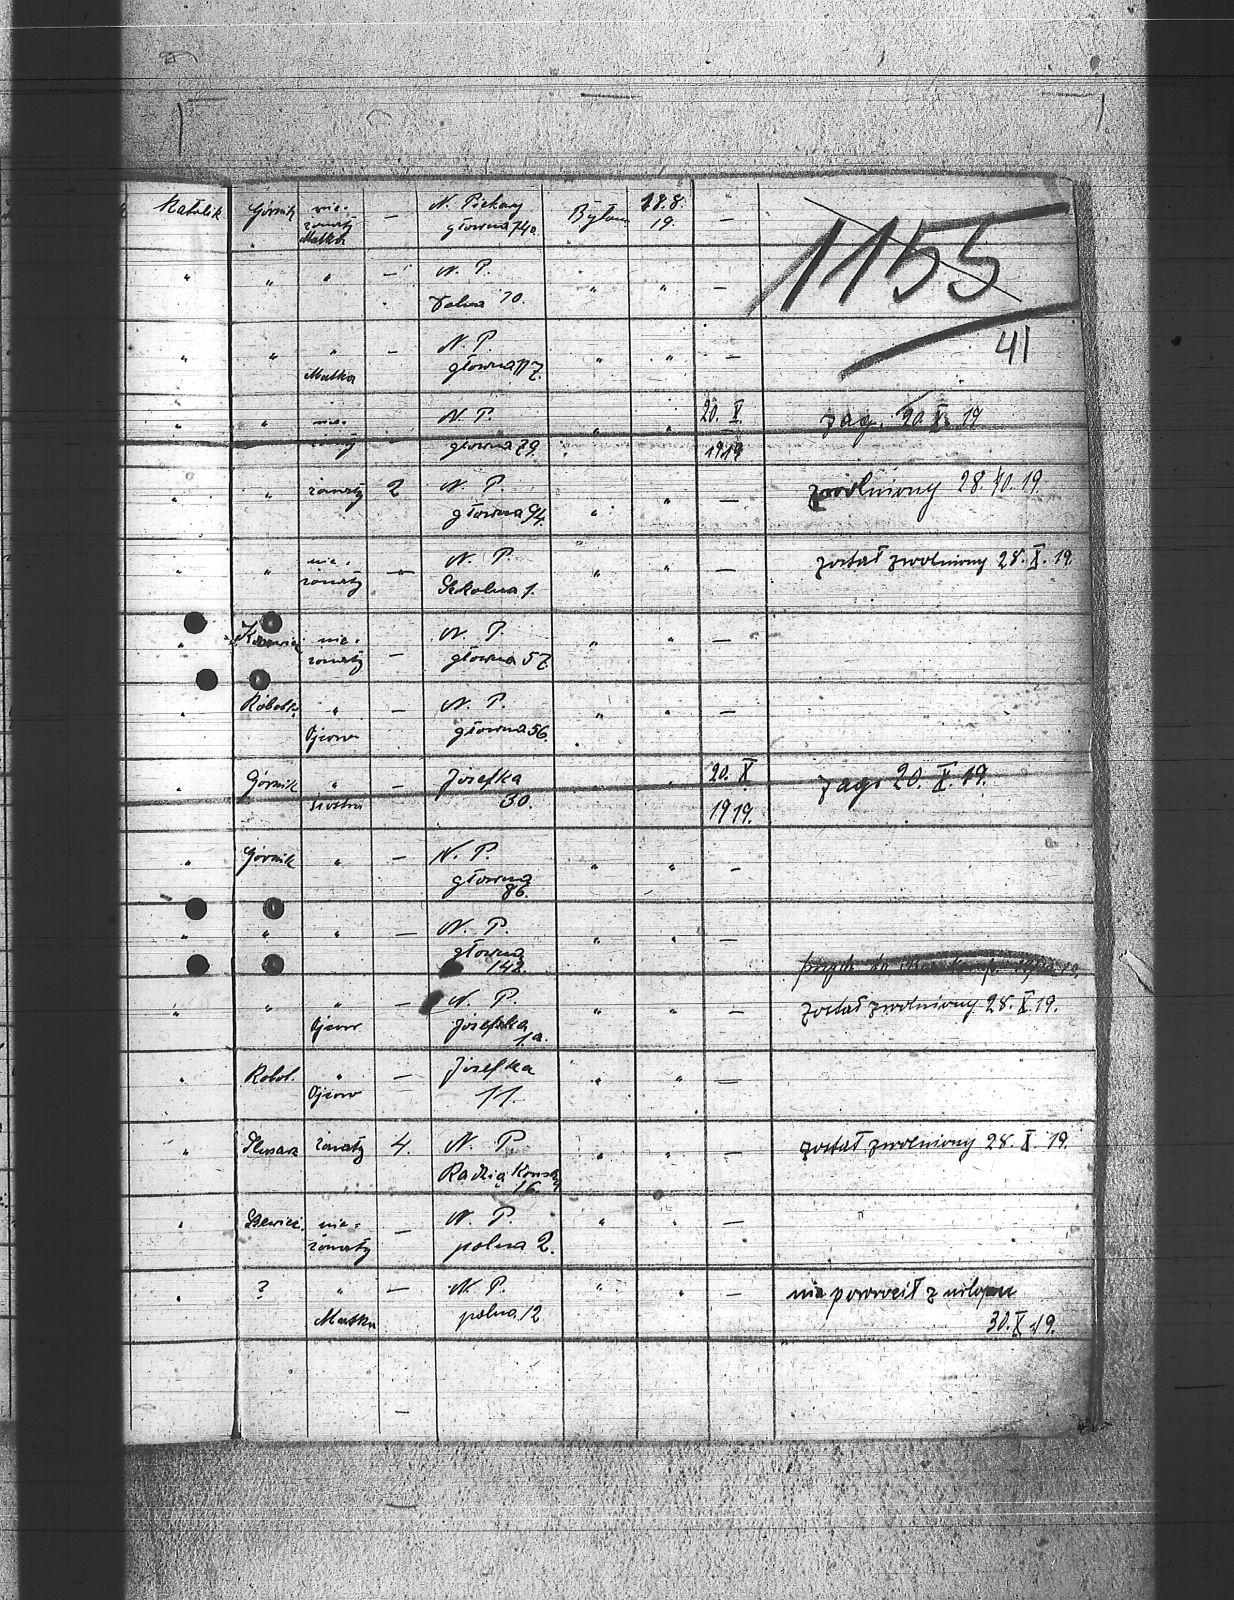 Katolik Górnik nie- — N. Piekary Bytom 18.8. —
żonaty główna 74a. 19.
Matka
1155
" " " — N. P. " " —
Dolna 70.
41
" " " — N. P. " " —
Matka główna 117.
" " nie- N. P. " " 20. X. zag. 20. X. 19.
główna 79. 1919
" " żonaty 2 N. P. " " — zwolniony 28.10.19.
główna 94.
" " nie- — N. P. " " — został zwolniony 28. X. 19.
żonaty Szkolna 1.
" nie- — N. P. " " —
żonaty główna 57.
" Robotn. " — N. P. " " —
Ojciec główna 56.
" Górnik " — Józefka " " 20. X. zag. 20. X. 19.
siostra 30. 1919.
" Górnik " — N. P. " " —
główna
86.
" " " — N. P. " " —
główna
142.
" " " — N. P. " " — został zwolniony 28. X. 19.
Ojciec Józefka
1a.
" Robot. " — Józefka " " —
Ojciec 11.
" Ślusarz żonaty 4. N. P. " " — został zwolniony 28. X. 19.
Radzionkowska
16.
" Szewiec nie- — N. P. " " —
żonaty polna 2.
" ? " — N. P. " " — nie powrócił z urlopu
Matka polna 12 30. X. 19.
—